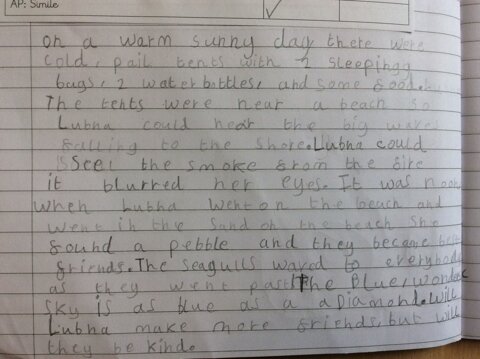 AP: Simile
on a warm sunny day there were
cold, pail tents with 2 sleeping
bags, 2 water bottles, and some food.
The tents were near a beach so
Lubna could hear the big waves
falling to the shore. Lubna could
See the smoke from the fire
it blurred her eyes. It was noon
when Lubna went on the beach and
went in the sand on the beach she
found a pebble and they became best
friends. The seagulls waved to everybody
as they went past. The Blue, 
sky is as blue as a a Diamond. Will
Lubna make more friends, but will
they be kind.